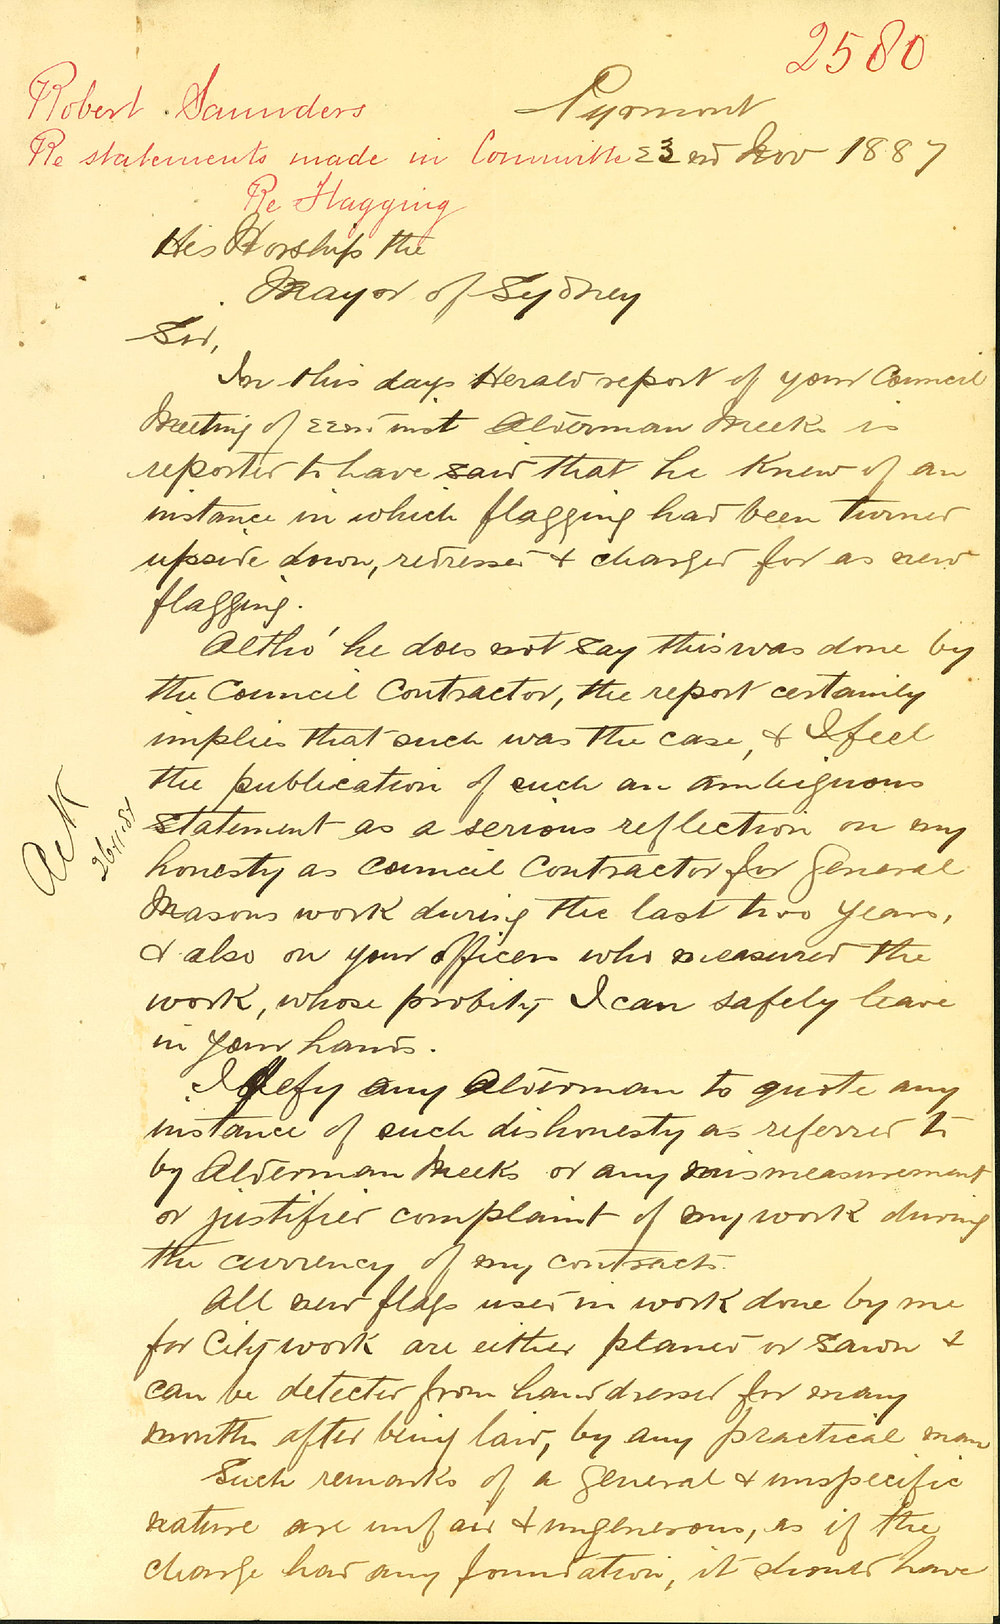 2580
Robert Saunders
Pyrmont
Re statements made in Committee
23rd Nov 1887
Re Flagging
His Worship the
Mayor of Sydney
Sir,
In this days Herald report of your Council
Meeting of 22nd inst Alderman Meeks is
reported to have said that he knew of an
instance in which flagging had been turned
upside down, redressed & charged for as new
flagging.
Altho' he does not say this was done by
the Council Contractor, the report certainly
implies that such was the case, & I feel
the publication of such an ambiguous
statement as a serious reflection on my
honesty as Council Contractor for General
Masons work during the last two years,
& also on your officers who measured the
work, whose probity I can safely leave
in your hands.
I defy any Alderman to quote any
instance of such dishonesty as referred to
by Alderman Meeks or any mismeasurement
or justified complaint of my work during
the currency of my contracts.
All new flags used in work done by me
for City work are either planed or sawn &
can be detected from hand dressed for many
months after being laid, by any practical man
Such remarks of a general & unspecific
nature are unfair & ungenerous, as if the
charge had any foundation, it should have
Ack
26/11/87